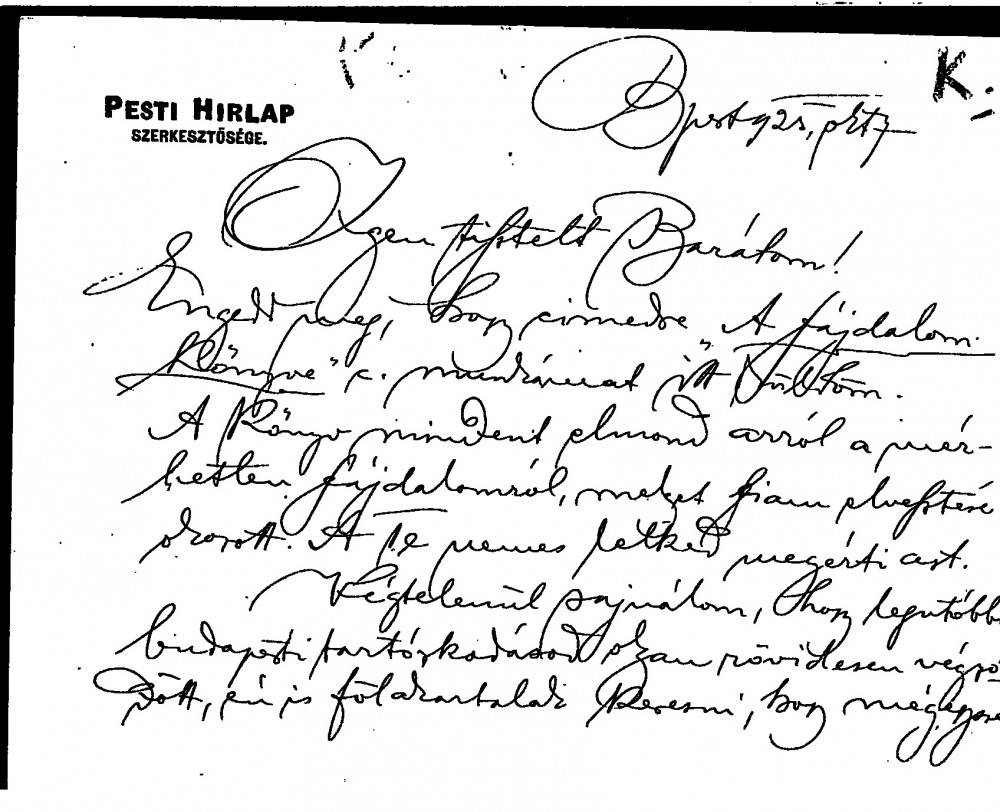 K.
PESTI HIRLAP
SZERKESZTŐSÉGE.
Bpest 925, okt 7
Igen tisztelt Barátom!
Engedd meg, hogy cimedre „A fájdalom
Könyve" c. munkámat itt küldöm.
A Könyv mindent elmond arról a mér-
hetetlen fájdalomról, melyet fiam elvesztése
okozott. A Te nemes lelked megérti azt.
Végtelenül sajnálom, hogy legutóbbi
budapesti tartózkodásod olyan rövidesen végző-
dött, én is föl akartalak keresni, hogy mégegyszer